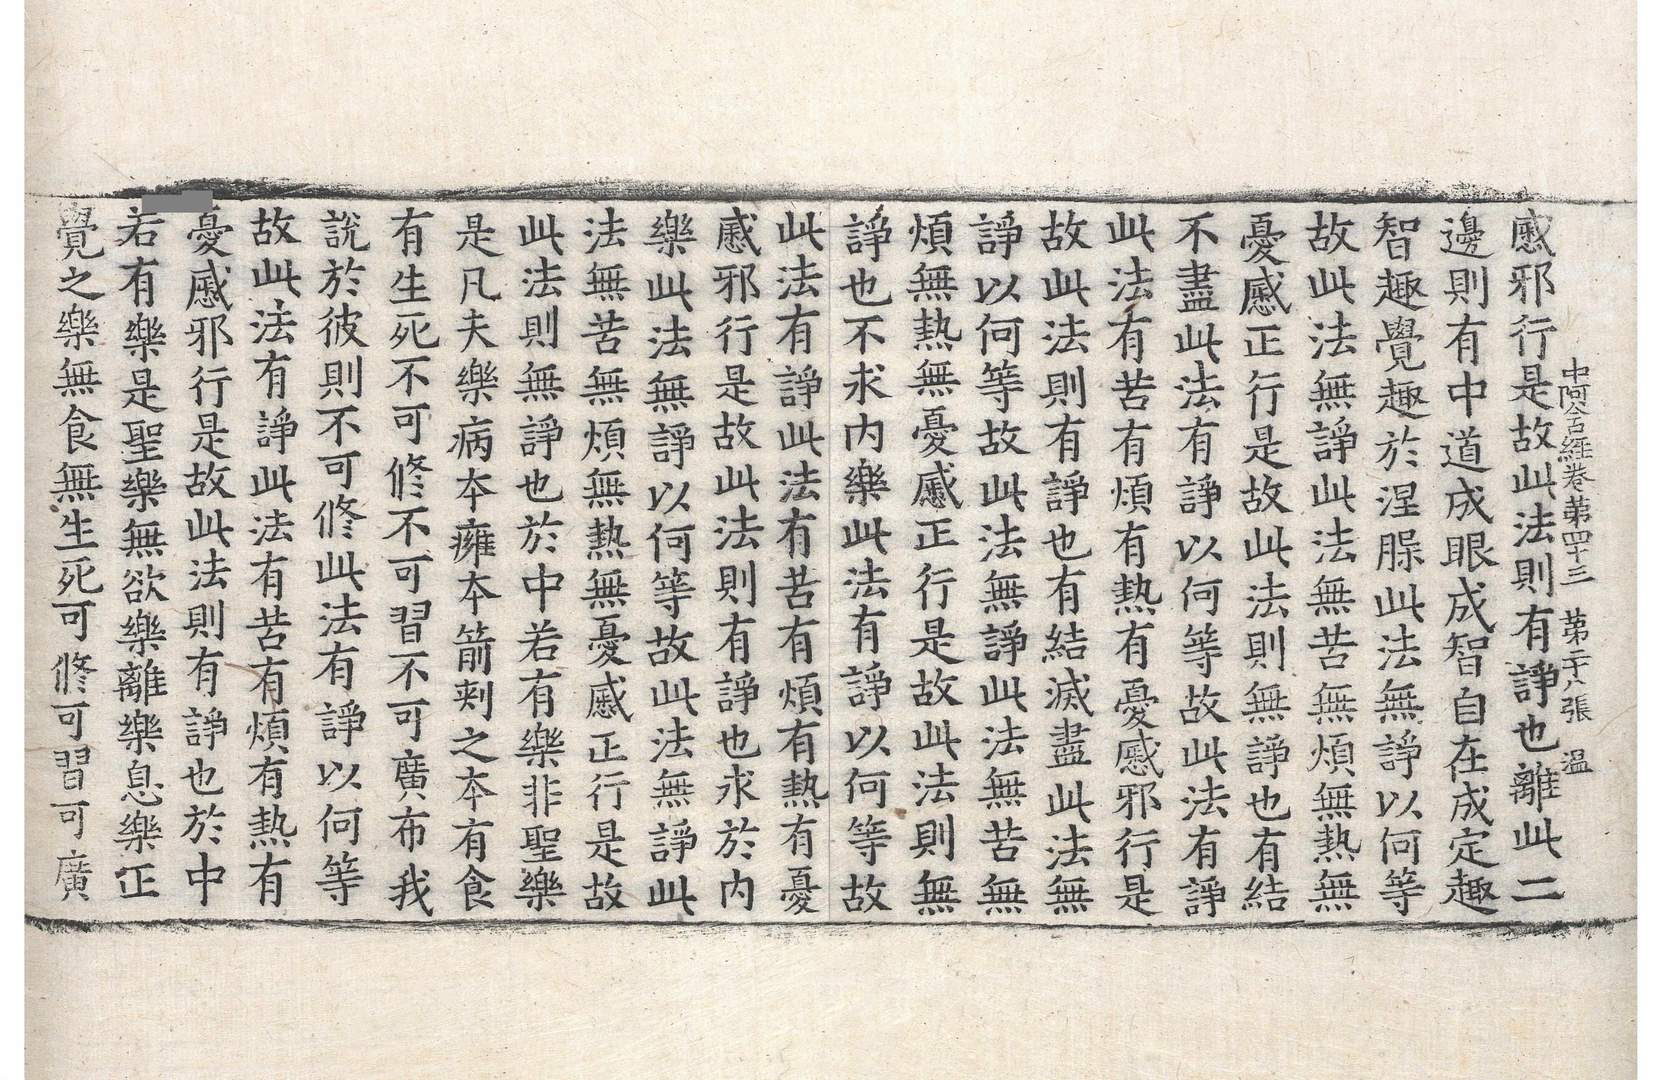 中阿含經卷第四十三 第二十八張 温
慼邪行是故此法則有諍也離此二
邊則有中道成眼成智自在成定趣
智趣覺趣於涅脲此法無諍以何等
故此法無諍此法無苦無煩無熱無
憂慼正行是故此法則無諍也有結
不盡此法有諍以何等故此法有諍
此法有苦有煩有熱有憂慼邪行是
故此法則有諍也有結滅盡此法無
諍以何等故此法無諍此法無苦無
煩無熱無憂慼正行是故此法則無
諍也不求内樂此法有諍以何等故
此法有諍此法有苦有煩有熱有憂
慼邪行是故此法則有諍也求於内
樂此法無諍以何等故此法無諍此
法無苦無煩無熱無憂慼正行是故
此法則無諍也於中若有樂非聖樂
是凡夫樂病本癰本箭刾之本有食
有生死不可修不可習不可廣布我
說於彼則不可修此法有諍以何等
故此法有諍此法有苦有煩有熱有
憂慼邪行是故此法則有諍也於中
若有樂是聖樂無欲樂離樂息樂正
覺之樂無食無生死可修可習可廣